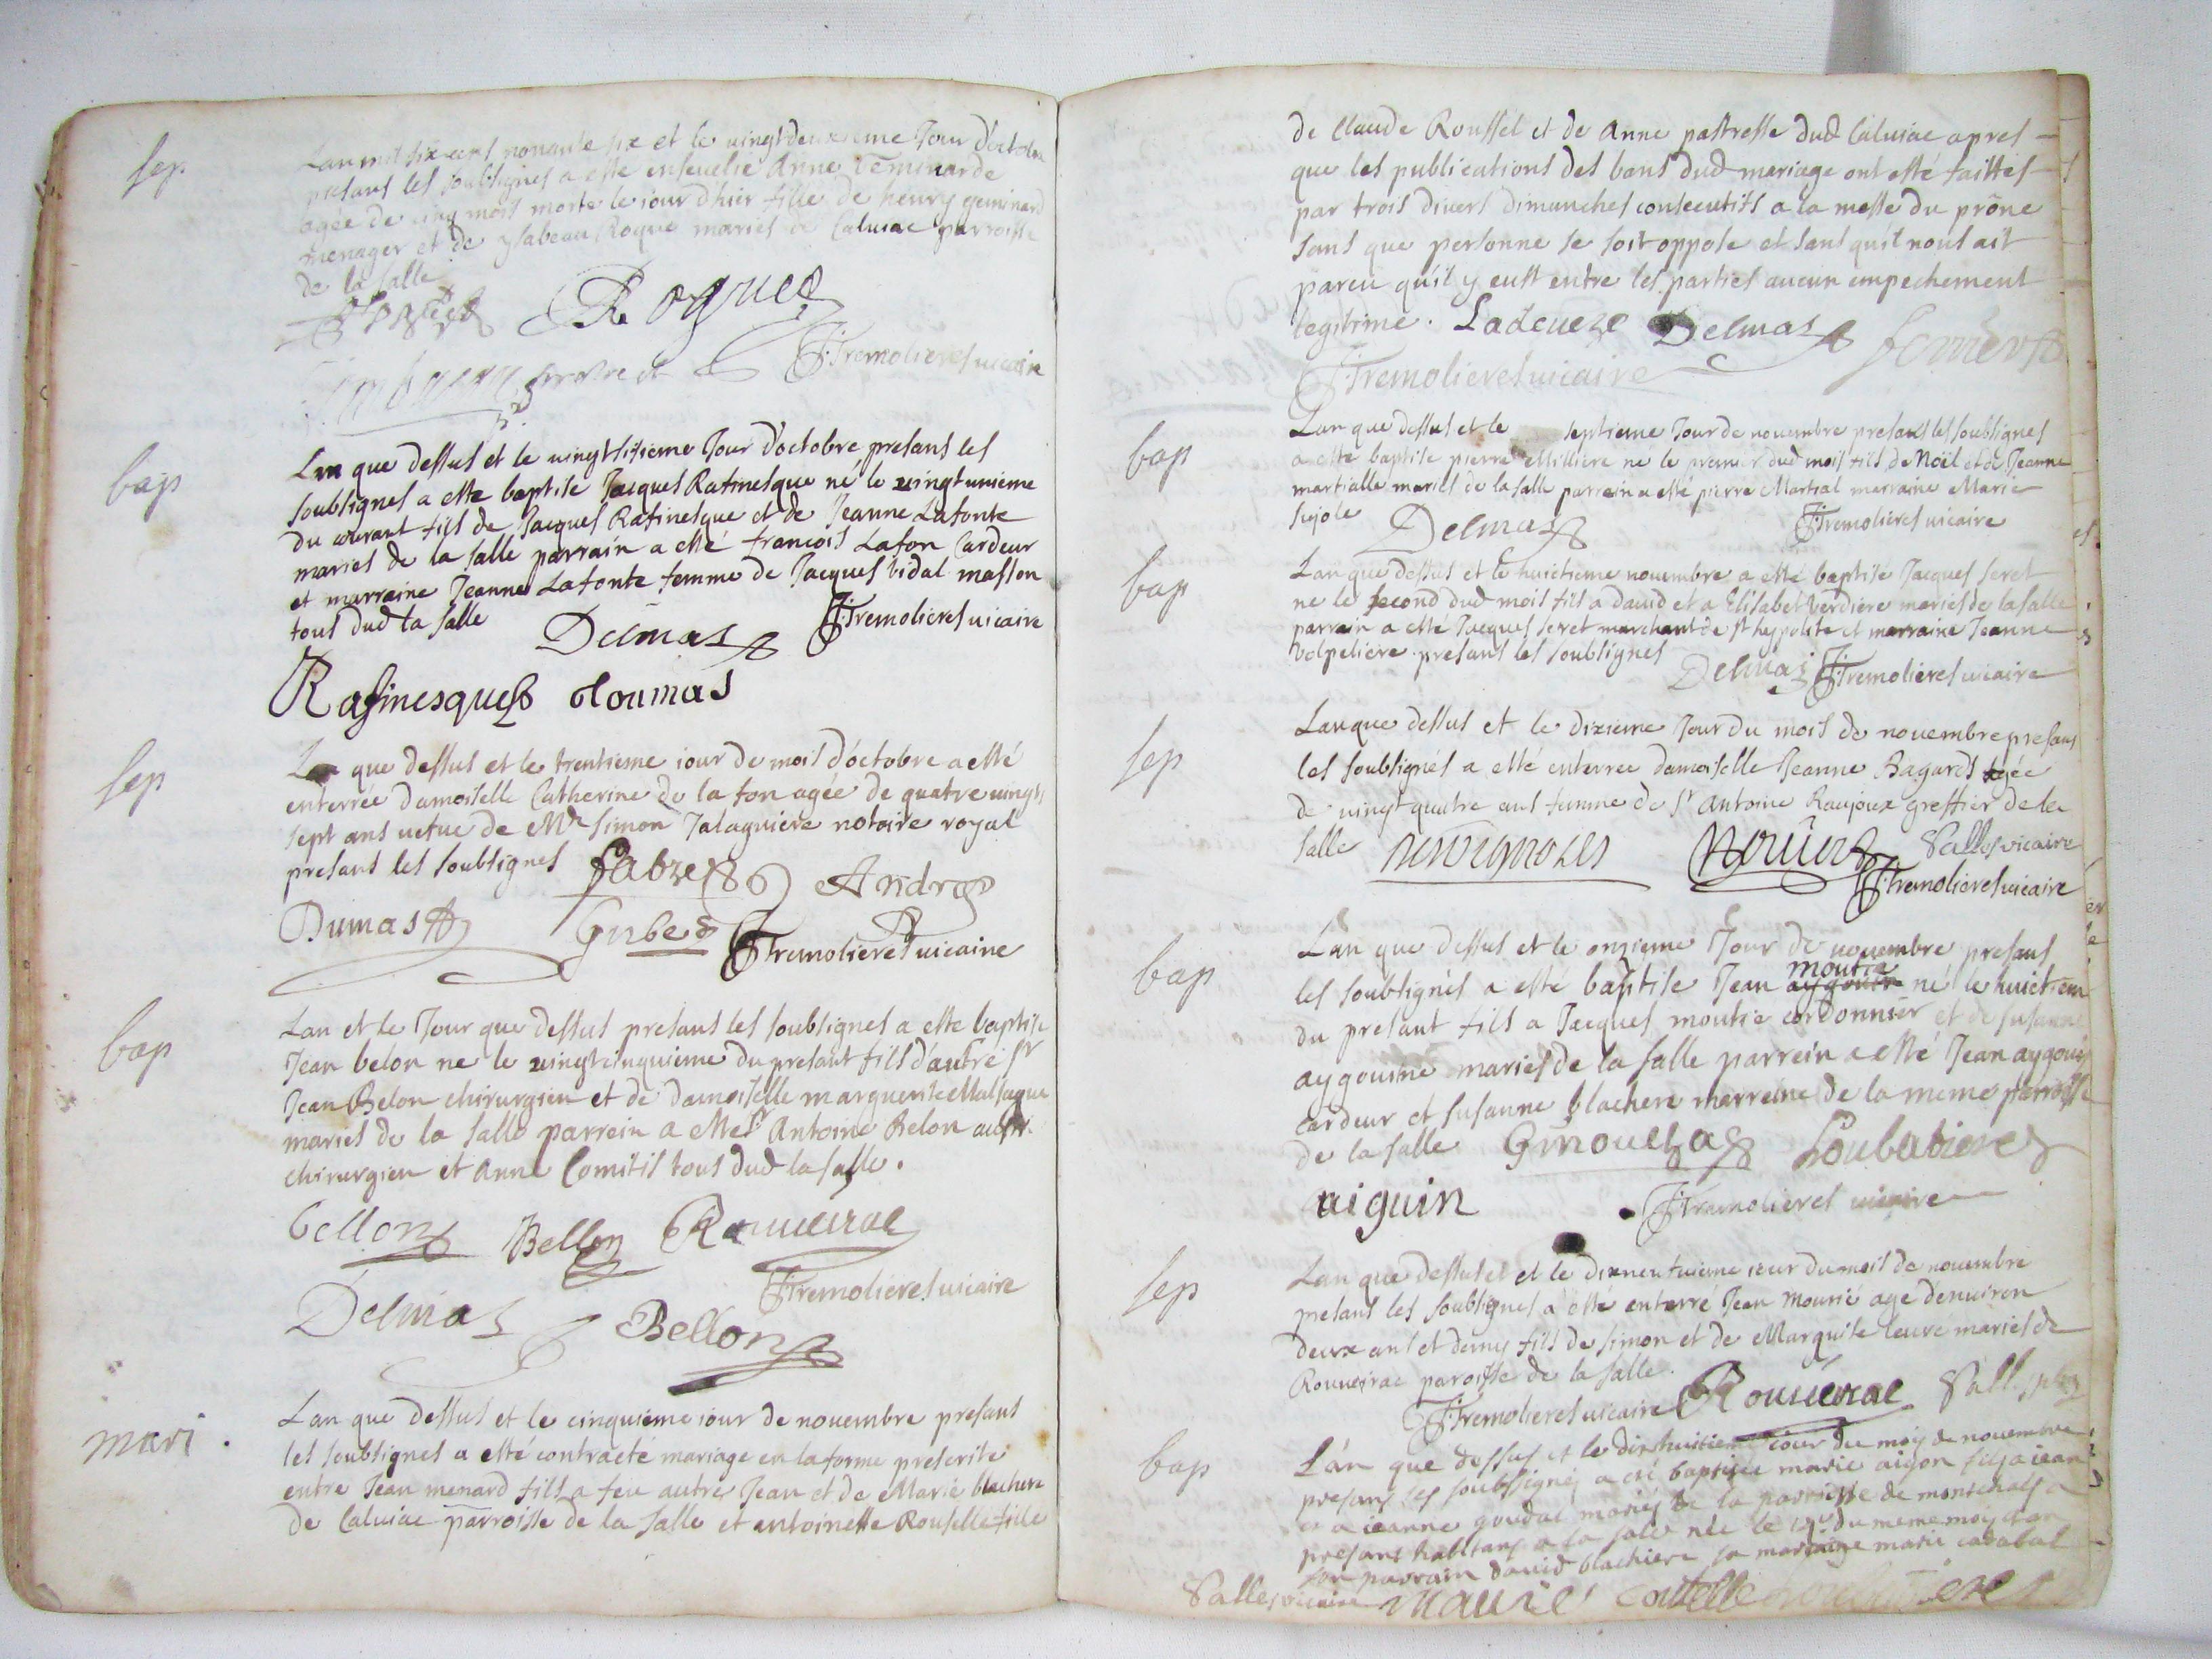 sep
Lan mil six cens nonante six et le uingtdeuxieme Jour doctobre
presans les soubsignes a esté enseuelie Anne Geminarde
agée de cinq mois morte le iour dhier fille de henry geminard
menager et de ysabeau Roque mariés de Caluiac parroisse
de la salle
Roques
F. Tremolieres uicaire
bap
Lan que dessus et le uingtsisieme Jour d'octobre presans les
soubsignes a esté baptise Jacques Rafinesque né le uingtunieme
du courant fils de Jacques Rafinesque et de Jeanne Lafonte
mariés de la salle parrain a esté francois Lafon Cardeur
et marraine Jeanne Lafonte femme de Jacques Vidal masson
tous dud la salle
Delmas
F. Tremolieres uicaire
Rafinesques
sep
Lan que dessus et le trentieme iour de mois d'octobre a esté
enterrée damoiselle Catherine de la fon agée de quatre uingts
sept ans uefue de Mr Simon Jalaguiere notaire royal
presans les soubsignes
fabre
André
Dumas
Gibert
F. Tremolieres uicaire
bap
Lan et le Jour que dessus presans les soubsignes a esté baptise
Jean belon ne le uingtcinquieme du presant fils d'autre sr
Jean Belon chirurgien et de damoiselle marguerite Malsague
mariés de la salle parrein a esté sr Antoine Belon aussi
chirurgien et Anne Comitis tous dud la salle.
bellon
Bellon
Rouueirac
F. Tremolieres uicaire
Delmas
Bellon
mari.
Lan que dessus et le cinquieme iour de nouembre presans
les soubsignes a esté contracté mariage en la forme prescrite
entre Jean menard fils a feu autre Jean et de Marie blachere
de Caluiac parroisse de la salle et antoinette Rouselle fille
de Claude Roussel et de Anne pastresse dud Caluiac apres
que les publications des bans dud mariage ont esté faittes
par trois diuers dimanches consecutifs a la messe du prône
sans que personne se soit oppose et sans qu'il nous ait
pareu qu'il y eust entre les parties aucun empechement
legitime.
Ladeueze
Delmas
F. Tremolieres uicaire
bap
Lan que dessus et le septieme Jour de nouembre presans les soubsignes
a esté baptise pierre Milliere né le premier dud mois fils de Noël et de Jeanne
martialle mariés de la salle parrein a esté pierre Martial marraine Marie
sujole
Delmas
F. Tremolieres uicaire
bap
Lan que dessus et le huictieme nouembre a esté baptise Jacques seret
ne le second dud mois fils a dauid et a Elisabet Verdiere mariés de la salle
parrain a esté Jacques seret marchant de st hypolite et marraine Jeanne
Volpeliere presans les soubsignes
Delmas
F. Tremolieres uicaire
sep
Lan que dessus et le dixieme Jour du mois de nouembre presans
les soubsignés a esté enterrée damoiselle Jeanne Bagards agée
de uingt quatre ans femme de sr antoine Raujoux greffier de la
salle
Salles vicaire
F. Tremolieres uicaire
bap
Lan que dessus et le onzieme Jour de nouembre presans
moutie
les soubsignés a esté baptise Jean aygouin né le huictiem
du presant fils a Jacques moutie cordonnier et de susanne
aygouine mariés de la salle parrein a esté Jean aygouin
cardeur et susanne blachere marreine de la meme parroisse
de la salle
Ginouelhac
Loubatiere
aiguin
F. Tremolieres uicaire
sep
Lan que dessus et le dixneufuieme iour du mois de nouembre
presans les soubsignes a esté enterré Jean Mourié agé denuiron
deux ans et demy fils de simon et de Marguite leure mariés de
Rouueirac paroisse de la salle.
F. Tremolieres uicaire
Rouueirac
bap
L'an que dessus et le dixhuitieme iour du moy de nouembre
presans les soubssignés a eté baptisée marie aigon fille a iean
et a ieanne goudal mariés de la parroisse de monschals a
presant habitans a la sale née le du meme moy et an
son parrain dauid blachiere sa marraine marie cabalal
Salles vicaire